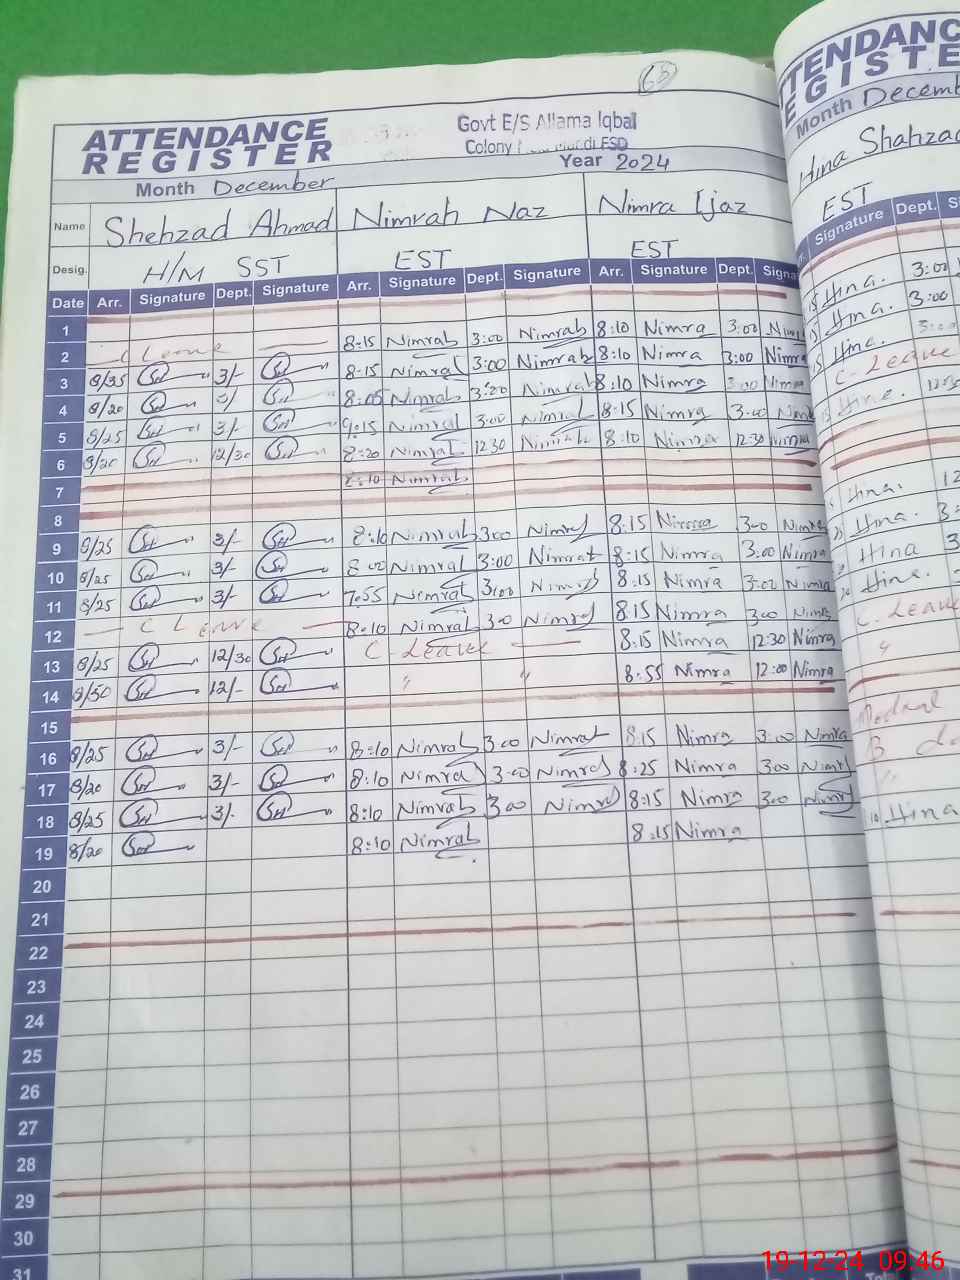 68
ATTENDANCE
REGISTER
Govt E/S Allama Iqbal
Colony
Month December
Year 2024
Name Shehzad Ahmad Nimrah Naz Nimra Ijaz
Desig. H/M SST EST EST
Date Arr. Signature Dept. Signature Arr. Signature Dept. Signature Arr. Signature Dept. Signa
1
2 C Leave 8:15 Nimrah 3:00 Nimrah 8:10 Nimra 3:00 Nimra
3 8/35 3/- 8:15 Nimrah 3:00 Nimrah 8:10 Nimra 3:00 Nimra
4 8/20 3/ 8:05 Nimrah 3:20 Nimrah 8:10 Nimra 3:00 Nimra
5 8/25 3/- Nimrah 3:00 Nimrah 8:15 Nimra 3:00 Nimra
6 8/20 12/30 8:20 Nimrah 12:30 Nimrah 8:10 Nimra 12:30 Nimra
7 8:10 Nimrah
8
9 8/25 3/- 8:10 Nimrah 3:00 Nimrah 8:15 Nimra 3:00 Nimra
10 8/25 3/- 8:00 Nimrah 3:00 Nimrah 8:15 Nimra 3:00 Nimra
11 8/25 3/- 7:55 Nimrah 3:00 Nimrah 8:15 Nimra 3:00 Nimra
12 C Leave 8:10 Nimrah 3:00 Nimrah 8:15 Nimra 3:00 Nimra
13 8/25 12/30 C. Leave 8:15 Nimra 12:30 Nimra
14 8/50 12/- " " 8:55 Nimra 12:00 Nimra
15
16 8/25 3/- 8:10 Nimrah 3:00 Nimrah 8:15 Nimra 3:00 Nimra
17 8/20 3/- 8:10 Nimrah 3:00 Nimrah 8:25 Nimra 3:00 Nimra
18 8/25 3/- 8:10 Nimrah 3:00 Nimrah 8:15 Nimra 3:00 Nimra
19 8/20 8:10 Nimrah 8:15 Nimra
20
21
22
23
24
25
26
27
28
29
30
31
TTENDANC
EGISTE
Month Decemb
Hina Shahzad
EST
Signature Dept. S
Hina. 3:00
Hina. 3:00
Hina. 3:00
C- Leave
Hine.
Hina. 12
Hina. 3
Hina 3
Hina.
C. Leave
"
Medical
Hina
19-12-24 09:46